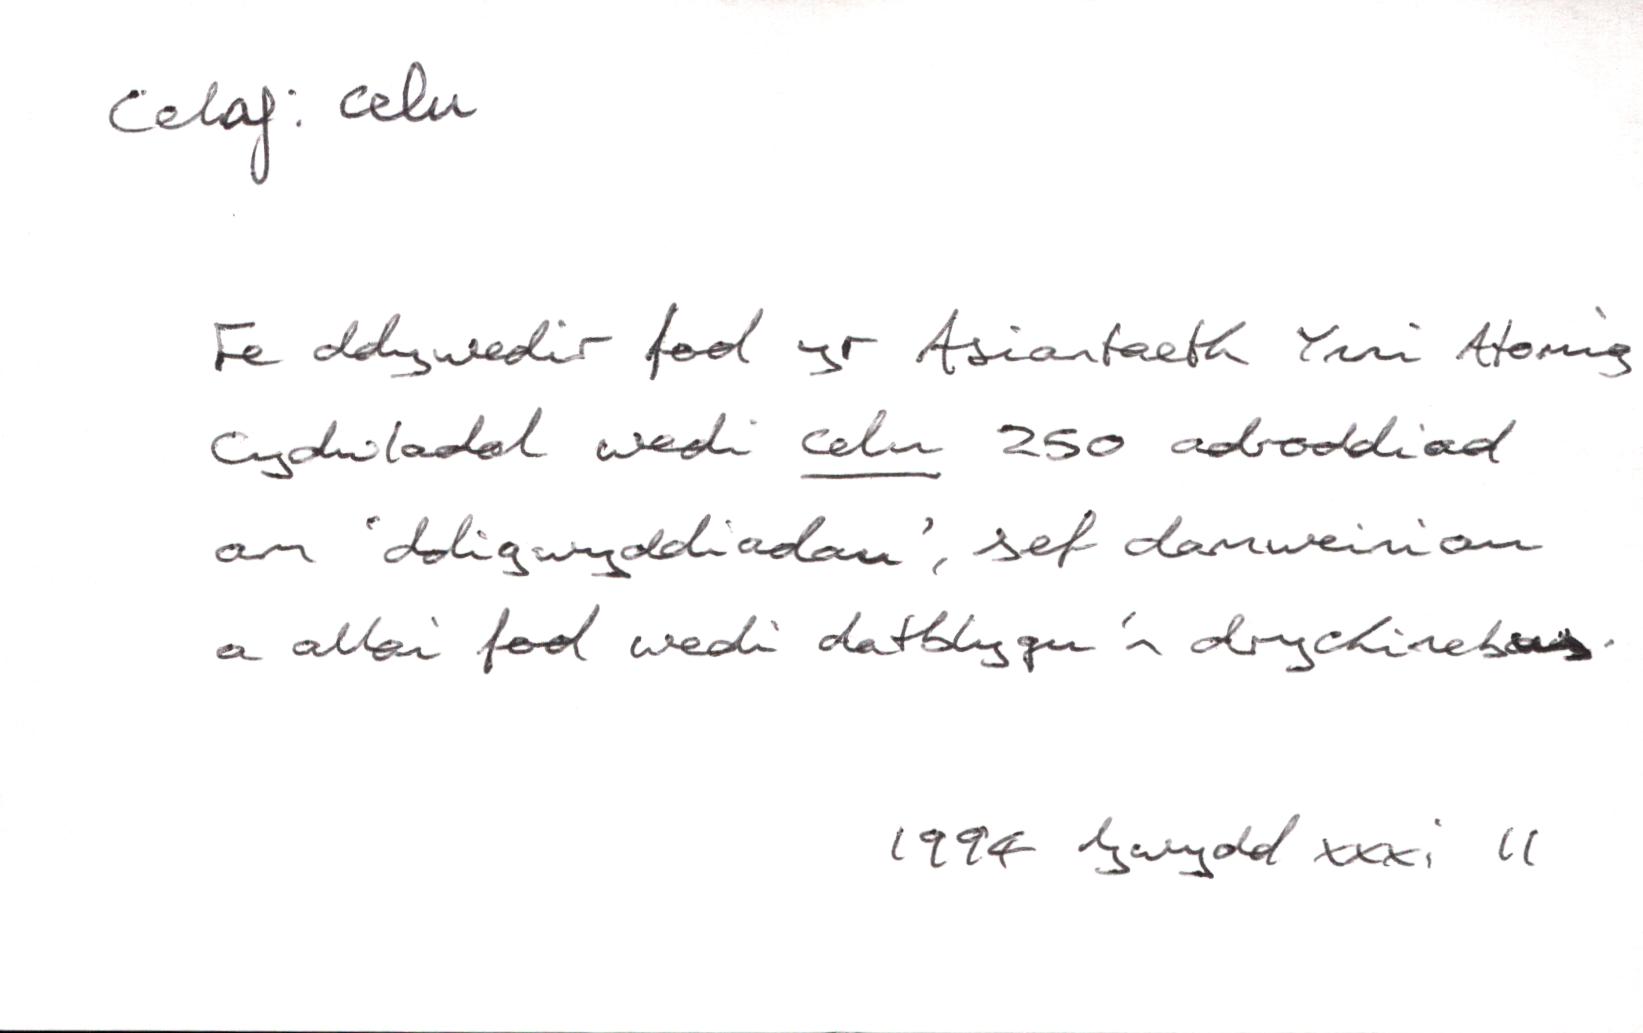 Celaf: celu
Fe ddywedir fod yr Asiantaeth Ynni Atomig
Cydwladol wedi celu 250 adroddiad
am 'ddigwyddiadau', sef damweiniau
a allai fod wedi datblygu'n drychinebus.
1994 Gwydd xxxi 11